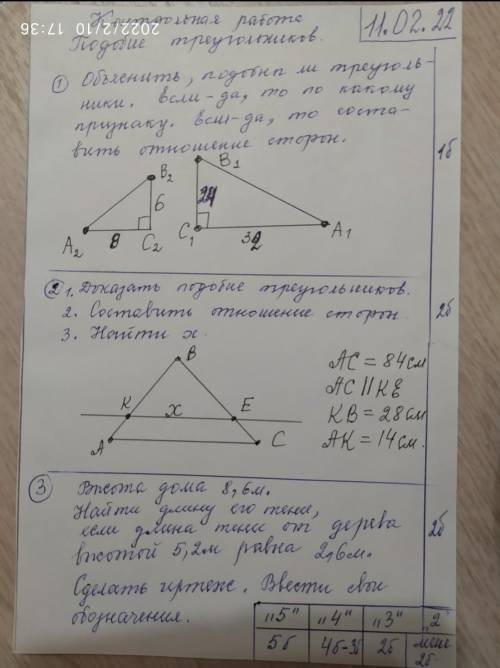 2022/2/10 17:36
Контрольная работа
Подобие треугольников.
11.02.22
① Объяснить, подобны ли треуголь-
ники. Если-да, то по какому
признаку. Если-да, то соста-
вить отношение сторон.
1б
B₂
6
A₂
8
C₂
B₁
24
C₁
32
A₁
② 1. Доказать подобие треугольников.
2. Составить отношение сторон
3. Найти x.
2б
B
K
x
E
A
C
AC = 84см
AC || KE
KB = 28см
AK = 14см.
③ Высота дома 8,6м.
Найти длину его тени,
если длина тени от дерева
высотой 5,2м равна 2,6м.
2б
Сделать чертеж. Ввести свои
обозначения.
„5" „4" „3" „2
5б 4б-3б 2б менее 2б